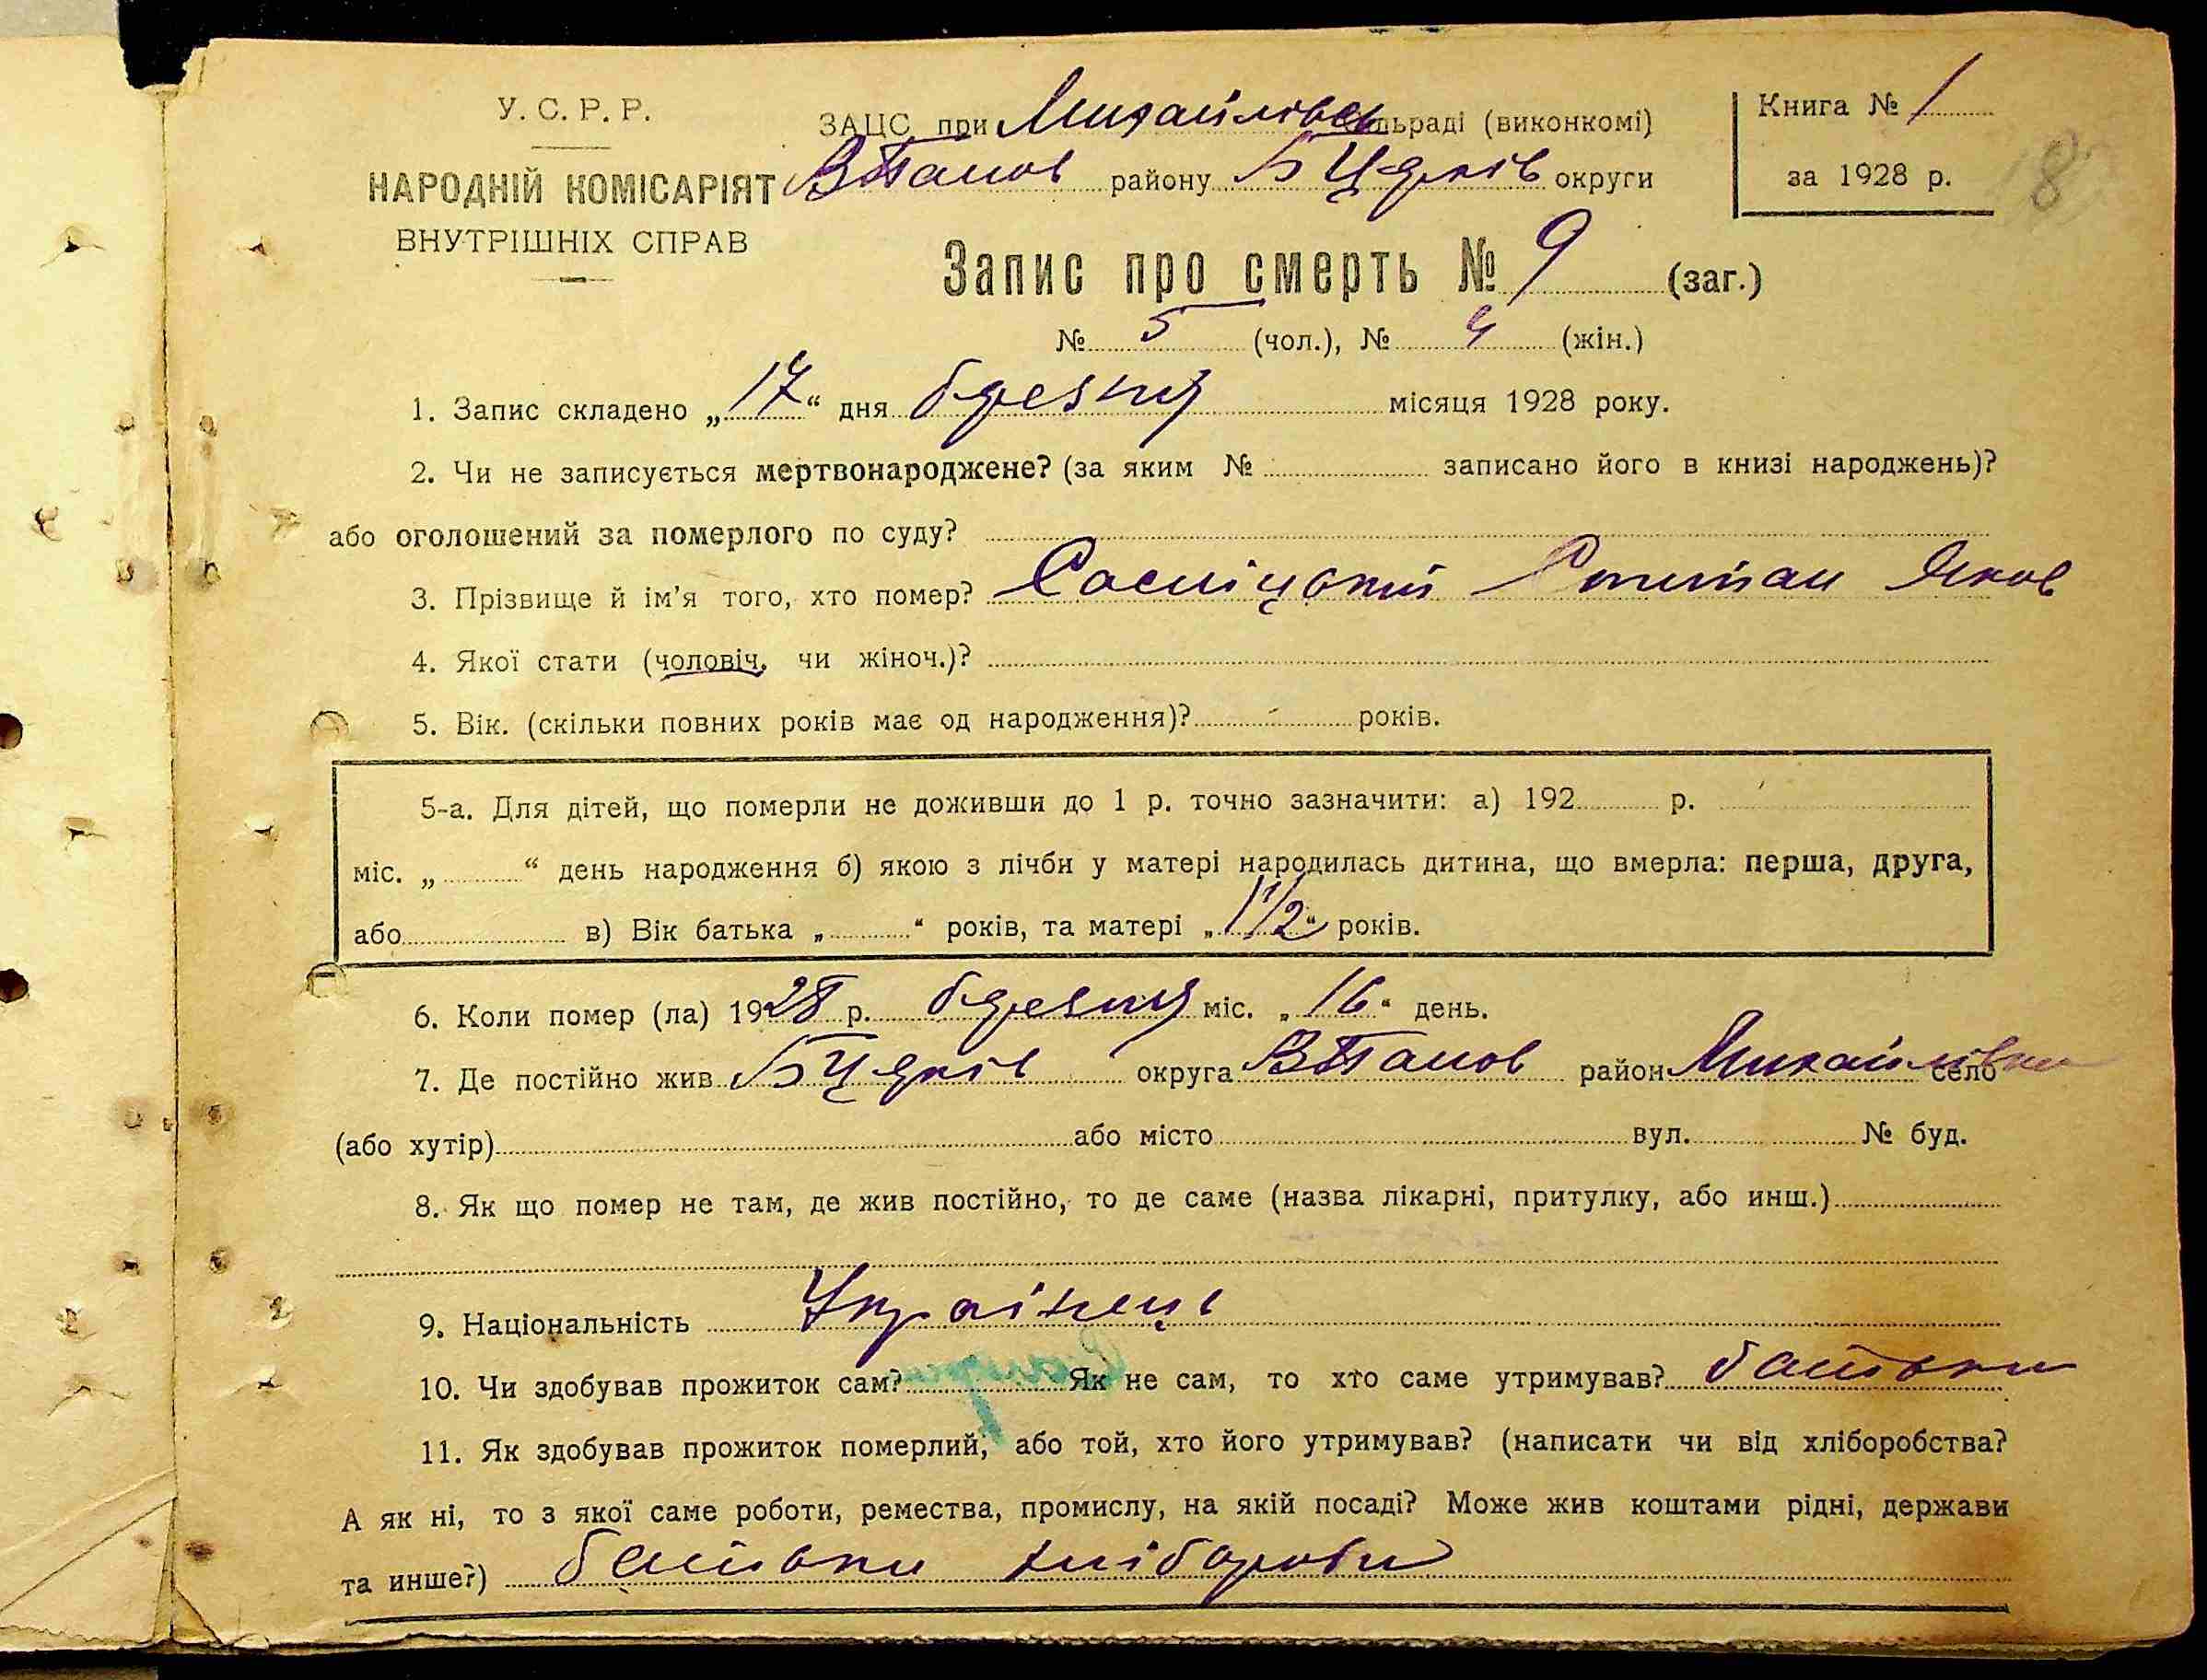 У. С. Р. Р.
НАРОДНІЙ КОМІСАРІЯТ
ВНУТРІШНІХ СПРАВ
ЗАЦС при Михайлівськ сільраді (виконкомі)
району БЦерків округи
Книга № 1
за 1928 р.
Запис про смерть № 9 (заг.)
№ 5 (чол.), № 4 (жін.)
1. Запис складено „17“ дня березня місяця 1928 року.
2. Чи не записується мертвонароджене? (за яким № записано його в книзі народжень)?
або оголошений за померлого по суду?
3. Прізвище й ім’я того, хто помер? Яков
4. Якої стати (чоловіч. чи жіноч.)?
5. Вік. (скільки повних років має од народження)? років.
5-а. Для дітей, що померли не доживши до 1 р. точно зазначити: а) 192 р.
міс. „ “ день народження б) якою з лічби у матері народилась дитина, що вмерла: перша, друга,
або в) Вік батька „ “ років, та матері „1 1/2“ років.
6. Коли помер (ла) 1928 р. березня міс. „16“ день.
7. Де постійно жив БЦерків округа район Михайлівка село
(або хутір) або місто вул. № буд.
8. Як що помер не там, де жив постійно, то де саме (назва лікарні, притулку, або инш.)
9. Національність Українець
10. Чи здобував прожиток сам? Як не сам, то хто саме утримував? батьки
11. Як здобував прожиток померлий, або той, хто його утримував? (написати чи від хліборобства?
А як ні, то з якої саме роботи, ремества, промислу, на якій посаді? Може жив коштами рідні, держави
та инше?) батьки хлібороби